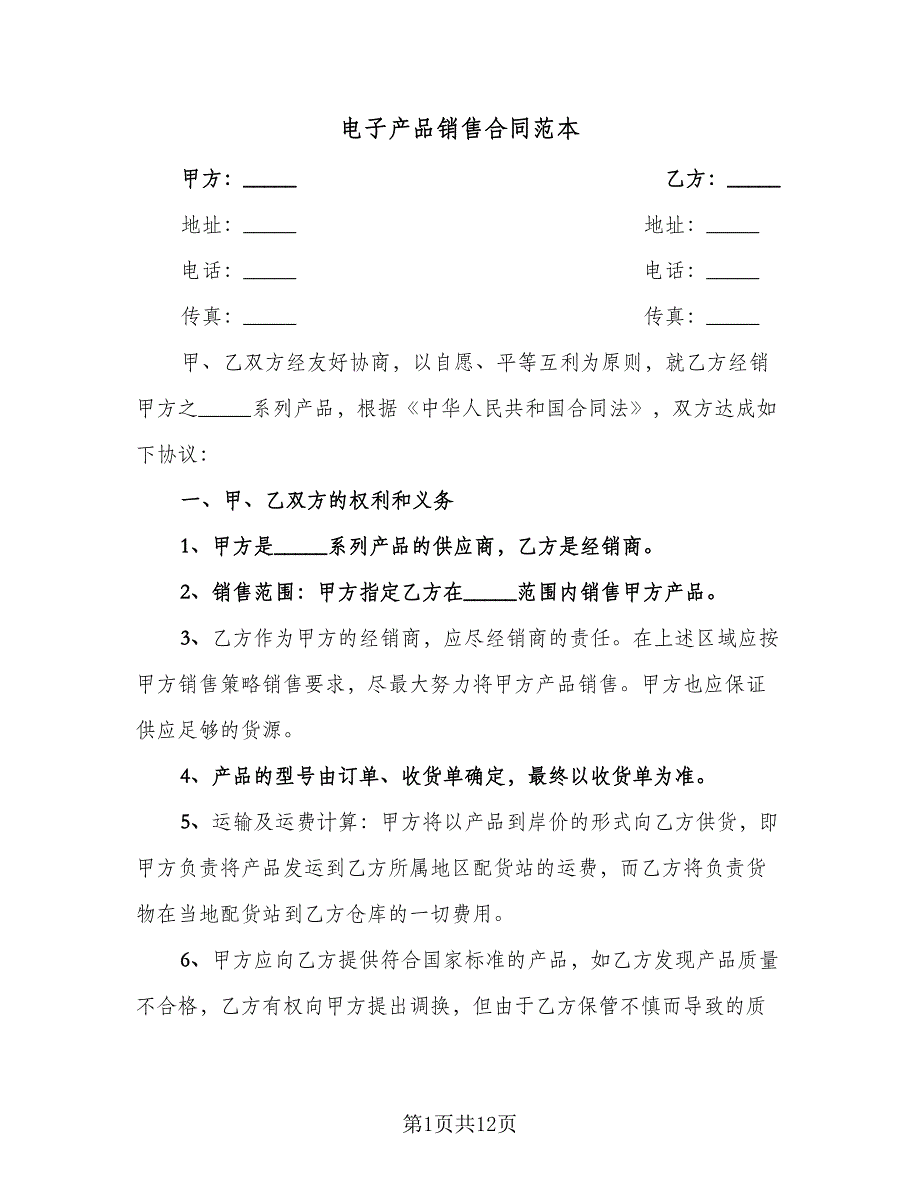 电子产品销售合同范本
甲方：_____ 乙方：_____
地址：_____ 地址：_____
电话：_____ 电话：_____
传真：_____ 传真：_____
甲、乙双方经友好协商，以自愿、平等互利为原则，就乙方经销
甲方之_____系列产品，根据《中华人民共和国合同法》，双方达成如
下协议：
一、甲、乙双方的权利和义务
1、甲方是_____系列产品的供应商，乙方是经销商。
2、销售范围：甲方指定乙方在_____范围内销售甲方产品。
3、乙方作为甲方的经销商，应尽经销商的责任。在上述区域应按
甲方销售策略销售要求，尽最大努力将甲方产品销售。甲方也应保证
供应足够的货源。
4、产品的型号由订单、收货单确定，最终以收货单为准。
5、运输及运费计算：甲方将以产品到岸价的形式向乙方供货，即
甲方负责将产品发运到乙方所属地区配货站的运费，而乙方将负责货
物在当地配货站到乙方仓库的一切费用。
6、甲方应向乙方提供符合国家标准的产品，如乙方发现产品质量
不合格，乙方有权向甲方提出调换，但由于乙方保管不慎而导致的质
第1页共12页